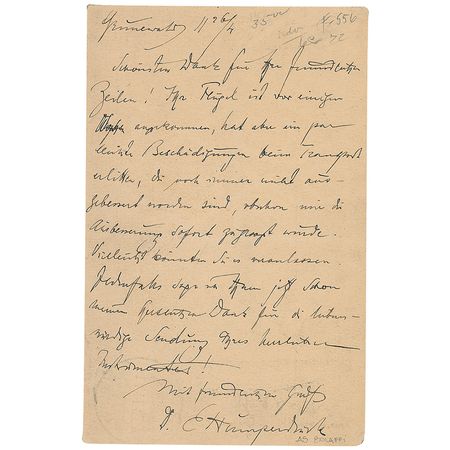 Grunewald, 11 26/4
35-
F. 556
72
Schönsten Dank für Ihre freundlichen
Zeilen! Ihr Flügel ist vor einigen
angekommen, hat aber ein paar
leichte Beschädigungen beim Transport
erlitten, die noch immer nicht aus-
gebessert worden sind, obschon mir die
Ausbesserung sofort zugesagt wurde.
Vielleicht könnten Sie es veranlassen.
Jedenfalls sage ich Ihnen jetzt schon
meinen herzlichsten Dank für die liebens-
würdige Sendung Ihres herrlichen
Instrumentes!
Mit freundlichem Gruß
E Humperdinck